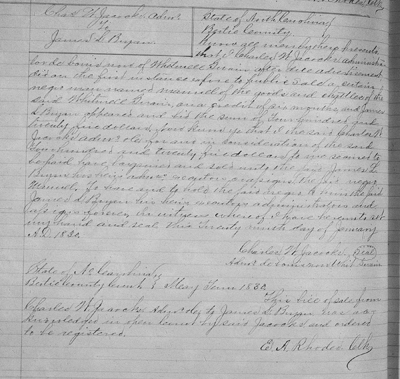 Chas W Jacocks Admr
To
James L Bryan
State of North Carolina
Bertie County
Know all men by these presents
that I Charles W Jacocks administrator
de bonis non of Whitmell
did on the first instance expose to public sale a certain
negro man named of the goods and chattles of the
said Whitmell on a credit of six months and James
L Bryan appeared and bid the sum of four hundred and
twenty five dollars, Now know ye that I the said Charles W
Jacocks admr as for and in consideration of the said
four hundred and twenty five dollars to me
paid have bargained and sold unto the said James L
Bryan his heirs admrs executors & assigns the said negro
to have and to hold the said to him the said
James L Bryan his heirs executors administrators and
assigns forever. In witness whereof I have hereunto set
my hand and seal this twenty ninth day of January
AD 1830.
Charles W Jacocks (Seal)
Admr de bonis non
State of No Carolina
Bertie County Court May Term 1830
This bill of sale from
Charles W Jacocks Admr &c to James L Bryan was
acknowledged in open court by said Jacocks and ordered
to be registered.
E. A. Rhodes Clk